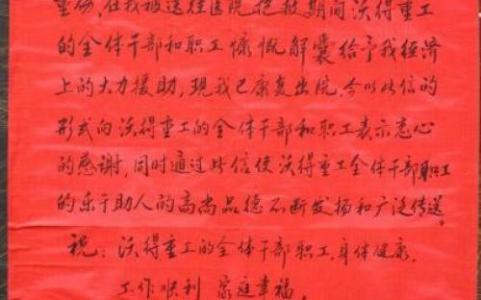 重伤，在我被送往医院抢救期间沃得重工
的全体干部和职工慷慨解囊给予我经济
上的大力援助，现我已康复出院，今以此信的
形式向沃得重工的全体干部和职工表示衷心
的感谢，同时通过此信使沃得重工全体干部职工
的乐于助人的高尚品德不断发扬和广泛传送。
祝：沃得重工的全体干部职工，身体健康，
工作顺利 家庭幸福，